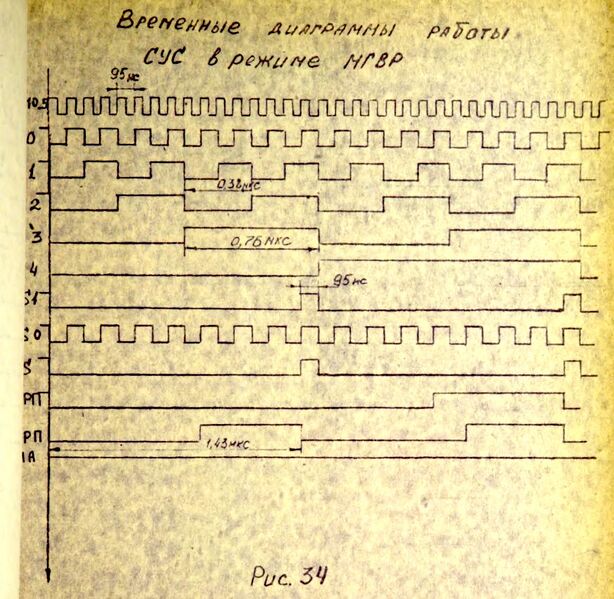 Временные диаграммы работы
СУС в режиме МГВР
95 нс
10,5
0
1
0,38 мкс
2
3
0,76 мкс
4
95 нс
S1
S0
S
РП
РП
1,43 мкс
1А
Рис. 34